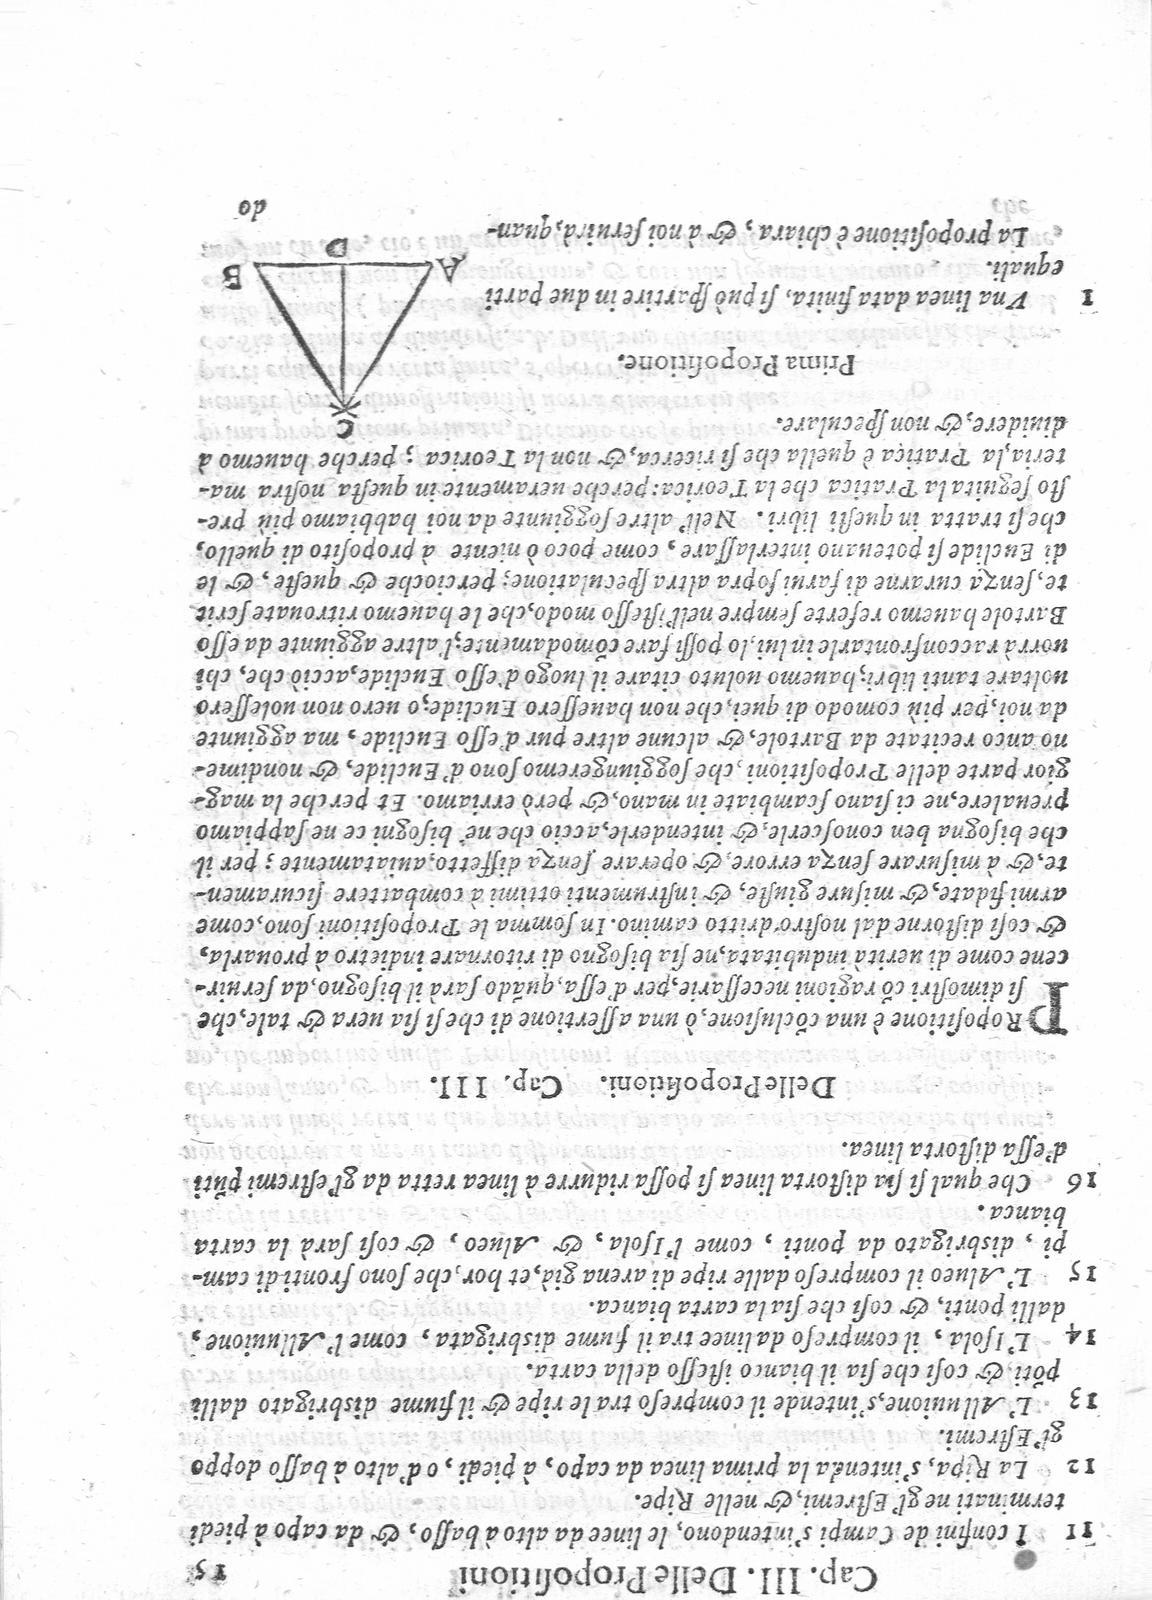 Cap. III. Delle Propositioni 15
11 I confini de Campi s'intendono, le linee da alto à basso, & da capo à piedi
terminati ne gl'Estremi, & nelle Ripe.
12 La Ripa, s'intenda la prima linea da capo, à piedi, o d'alto à basso doppo
gl'Estremi.
13 L'Alluuione, s'intende il compreso tra le ripe & il fiume disbrigato dalli
põti, & cosi che sia il bianco istesso della carta.
14 L'Isola, il compreso da linee tra il fiume disbrigata, come l'Alluuione,
dalli ponti, & cosi che sia la carta bianca.
15 L'Alueo il compreso dalle ripe di arena già, et hor, che sono fronti di cam-
pi, disbrigato da ponti, come l'Isola, & Alueo, & cosi sarà la carta
bianca.
16 Che qual si sia distorta linea si possa ridurre à linea retta da gl'estremi pũti
d'essa distorta linea.
Delle Propositioni. Cap. III.
PRopositione è una cõclusione, ò una assertione di che si sia uera & tale, che
si dimostri cõ ragioni necessarie, per d'essa, quãdo sarà il bisogno, da seruir-
cene come di uerità indubitata, ne sia bisogno di ritornare indietro à prouarla,
& cosi distorne dal nostro dritto camino. In somma le Propositioni sono, come
armi fidate, & misure giuste, & instrumenti ottimi à combattere sicuramen-
te, & à misurare senza errore, & operare senza diffetto, auiatamente; per il
che bisogna ben conoscerle, & intenderle, accio che nè bisogni ce ne sappiamo
preualere, ne ci siano scambiate in mano, & però erriamo. Et perche la mag-
gior parte delle Propositioni, che soggiungeremo sono d'Euclide, & nondime-
no anco recitate da Bartole, & alcune altre pur d'esso Euclide, ma aggiunte
da noi, per più comodo di quei, che non hauessero Euclide; o uero non uolessero
uoltare tanti libri; hauemo uoluto citare il luogo d'esso Euclide, acciò che, chi
uorrà racconfrontarle in lui, lo possi fare cõmodamente; l'altre aggiunte da esso
Bartole hauemo referte sempre nell'istesso modo, che le hauemo ritrouate scrit
te, senza curarne di farui sopra altra speculatione; percioche & queste, & le
di Euclide si poteuano interlassare, come poco ò niente à proposito di quello,
che si tratta in questi libri. Nell'altre soggiunte da noi habbiamo più pre-
sto seguita la Pratica che la Teorica: perche ueramente in questa nostra ma-
teria, la Pratica è quella che si ricerca, & non la Teorica; perche hauemo à
diuidere, & non speculare.
Prima Propositione.
1 Vna linea data finita, si può spartire in due parti
equali.
La propositione è chiara, & à noi seruirà, quan-
do
C
A
D
B